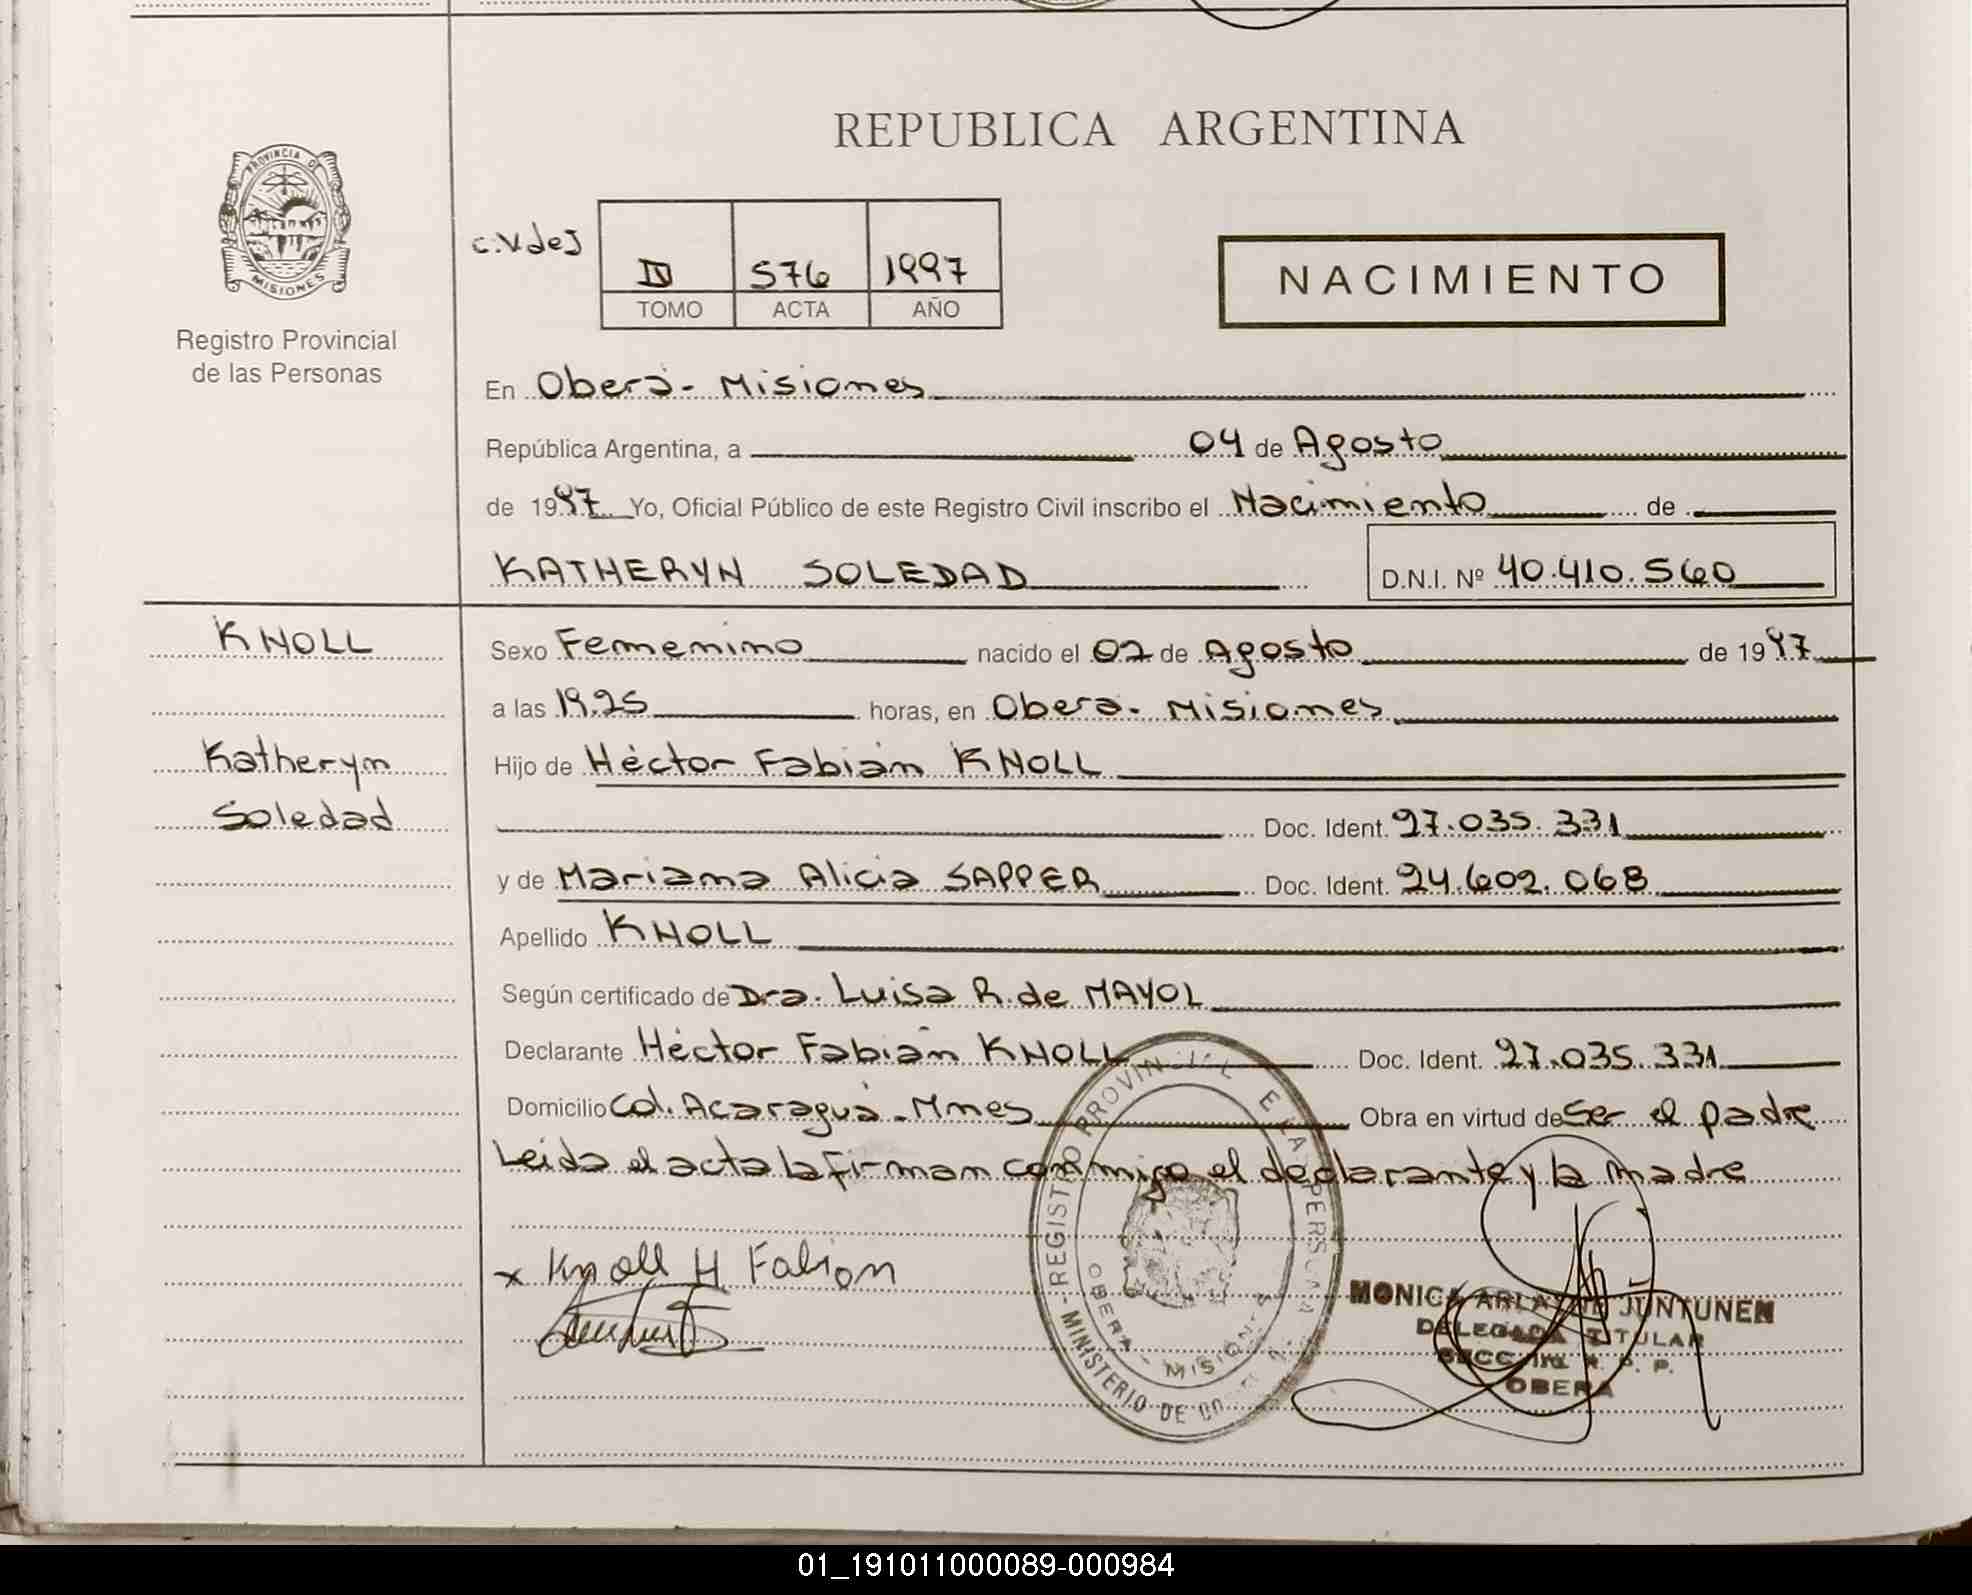 REPUBLICA ARGENTINA
PROVINCIA DE
MISIONES
Registro Provincial
de las Personas
c.V.deJ
IV 576 1997
TOMO ACTA AÑO
NACIMIENTO
En Oberá - Misiones
República Argentina, a 04 de Agosto
de 1997 Yo, Oficial Público de este Registro Civil inscribo el Nacimiento de
KATHERYN SOLEDAD D.N.I. Nº 40.410.560
KNOLL
Katheryn
Soledad
Sexo Femenino nacido el 02 de Agosto de 1997
a las 19.25 horas, en Oberá - Misiones
Hijo de Héctor Fabián KNOLL
Doc. Ident. 27.035.331
y de Mariana Alicia SAPPER Doc. Ident. 24.602.068
Apellido KNOLL
Según certificado de Dra. Luisa R. de MAYOL
Declarante Héctor Fabián KNOLL Doc. Ident. 27.035.331
Domicilio Col. Acaraguá - Mnes Obra en virtud de Ser el padre
Leida el acta la firman conmigo el declarante y la madre
x Knoll H Fabion
REGISTRO PROVINCIAL DE LAS PERSONAS
MINISTERIO DE
OBERA - MISIONES
MONICA DE JUNTUNEN
DELEGADA TITULAR
R. P. P.
OBERA
01_191011000089-000984